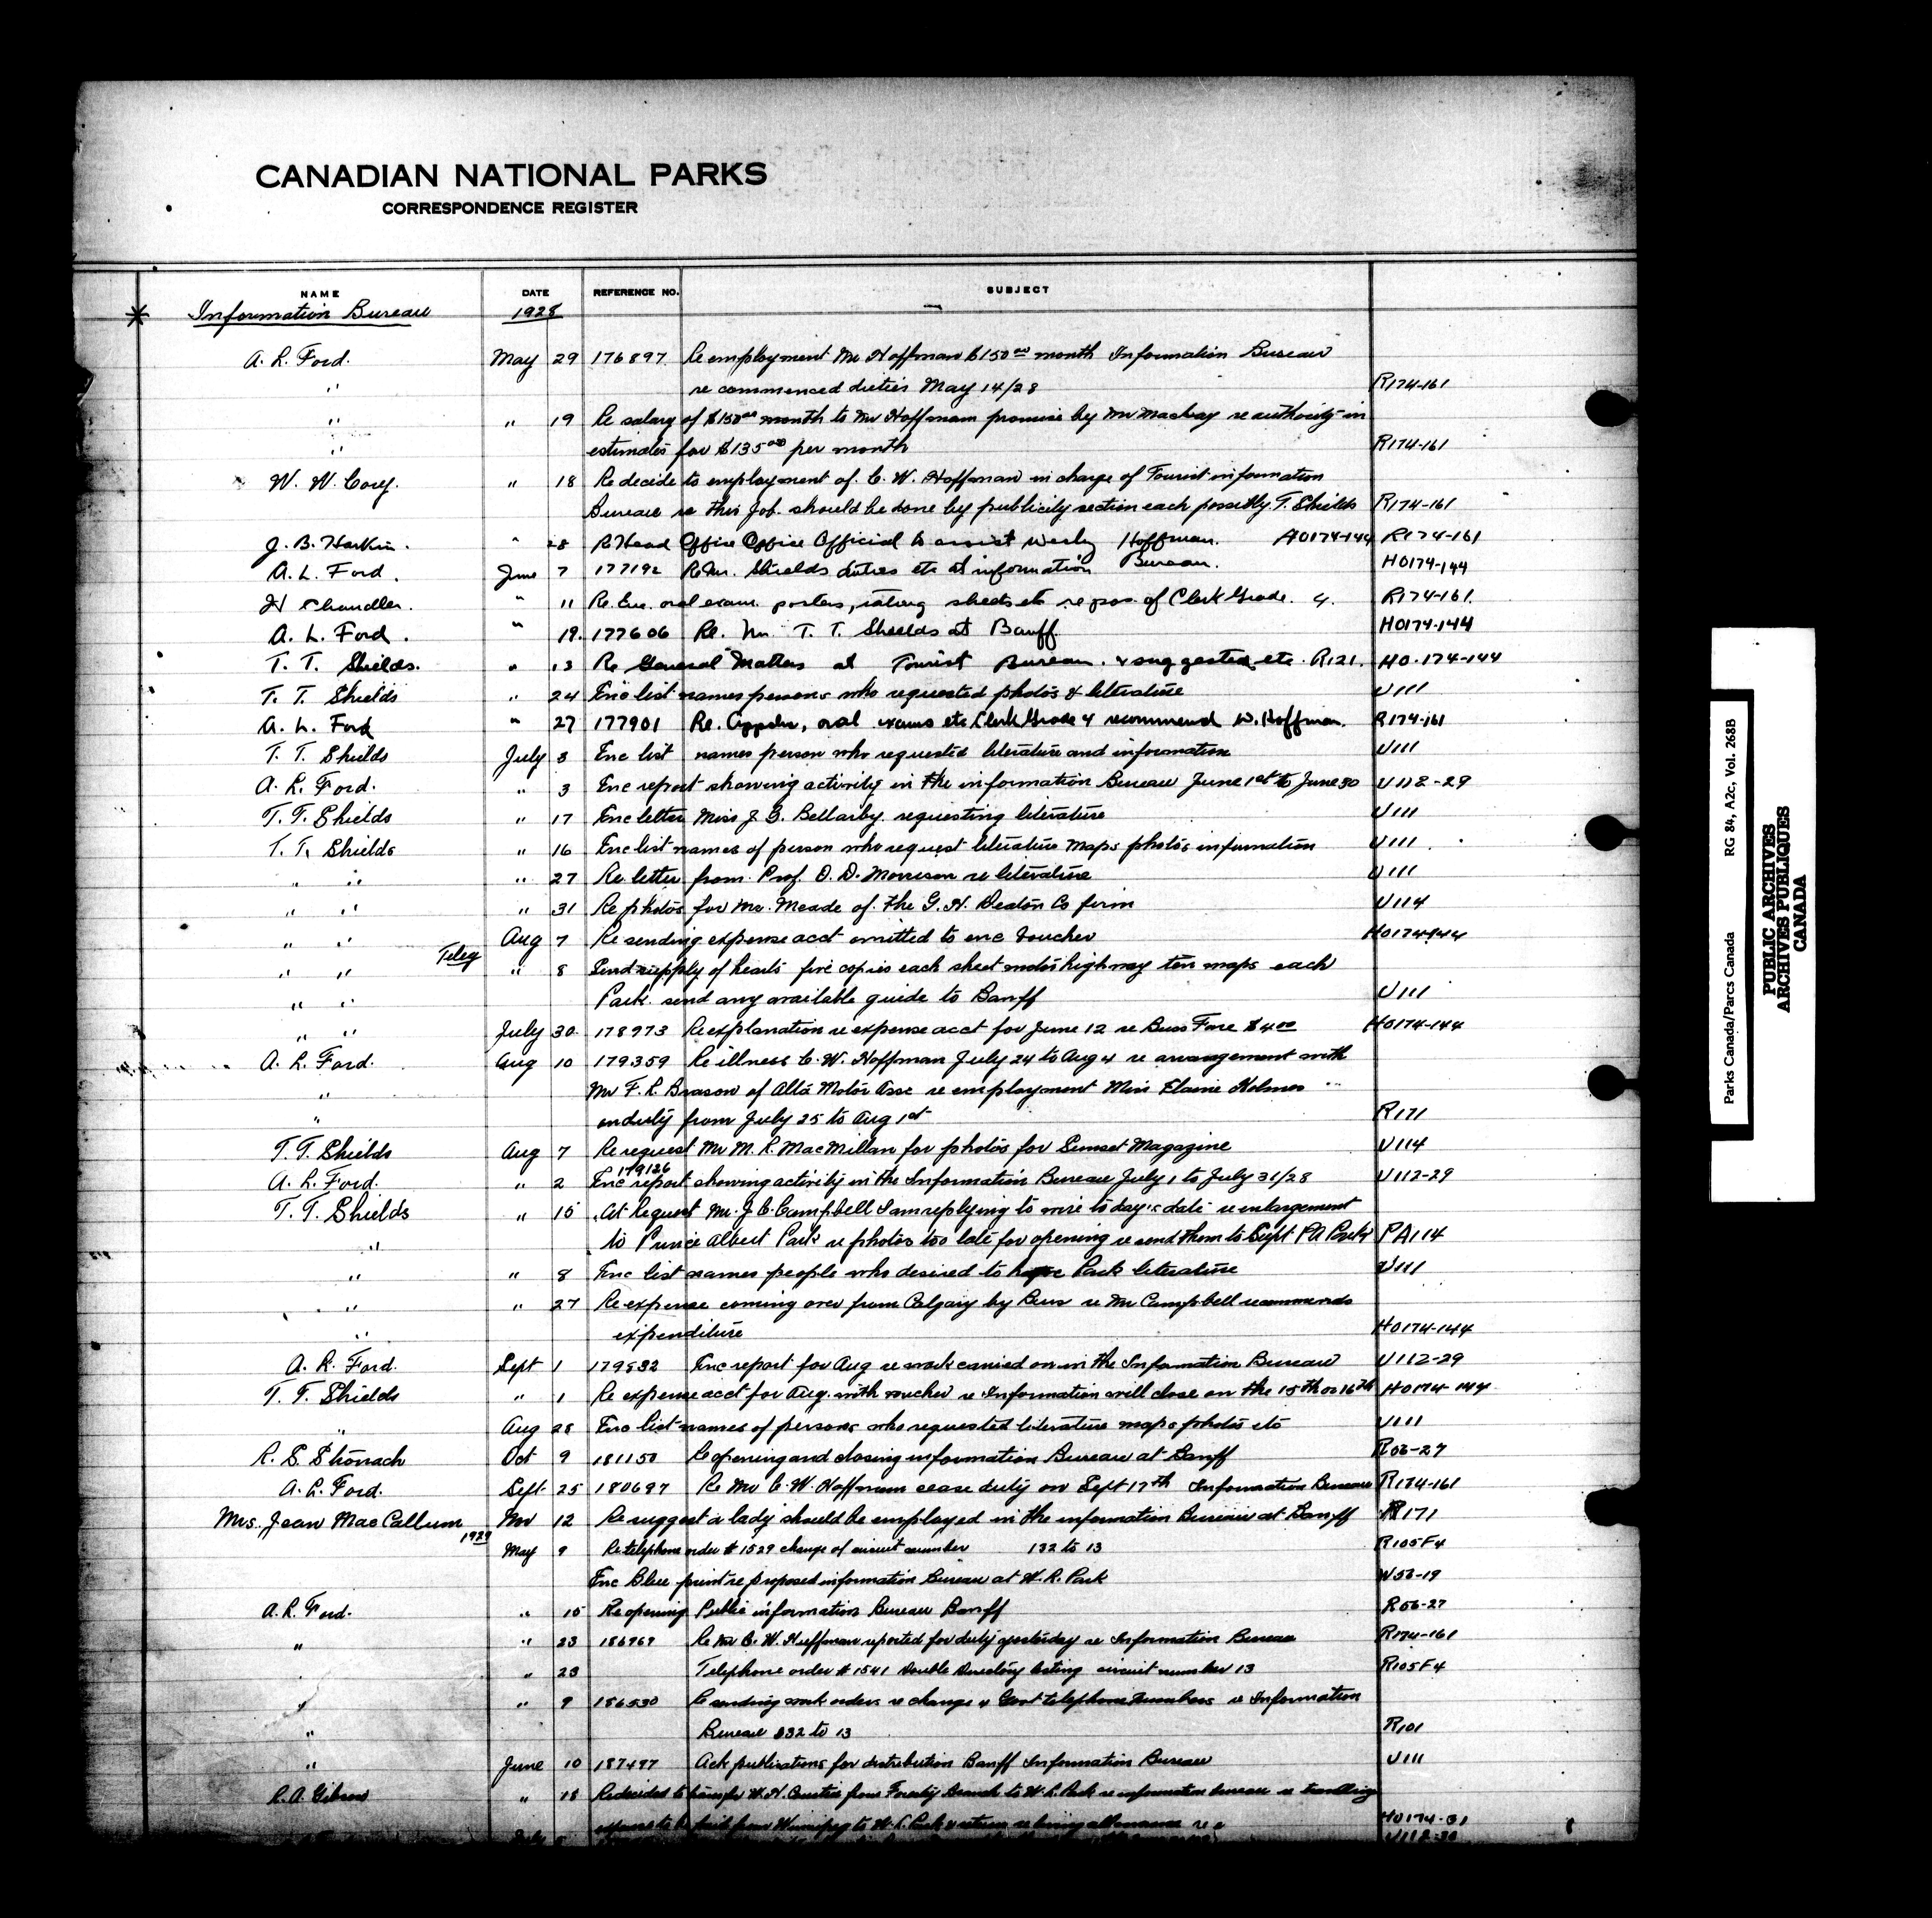 CANADIAN NATIONAL PARKS
CORRESPONDENCE REGISTER
NAME DATE REFERENCE NO. SUBJECT
Information Bureau 1928
A. L. Ford. May 29 176897 Re employment Mr Hoffman $150 00 month Information Bureau
" re commenced duties May 14/28 R174-161
" " 19 Re salary of $150 00 month to Mr Hoffmam promise by Mr Mackay re authority in
" estimates for $135 00 per month R174-161
W. W. Cory. " 18 Re decide to employment of C. W. Hoffman in charge of Tourist information
Bureau re this job should be done by publicity section each possibly T. Shields R174-161
J. B. Harkin. " 28 Re Head Office Office Official to assist Wesley Hoffman. H0174-144 R174-161
A. L. Ford. June 7 177192 Re Mr. Shields duties etc at information Bureau. H0174-144
H Chandler. " 11 Re. Enc. oral exam. posters, rating sheets etc re pos. of Clerk Grade. 4. R174-161.
A. L. Ford. " 19. 177606 Re. Mr T. T. Shields at Banff. H0174-144
T. T. Shields. " 13 Re General Matters at Tourist Bureau. & suggested etc. R121. H0.174-144
T. T. Shields " 24 Enc list names persons who requested photos & literature U111
A. L. Ford " 27 177901 Re. Appln, oral exams etc Clerk Grade 4 recommend W. Hoffman. R174-161
T. T. Shields July 3 Enc list names person who requested literature and information U111
A. L. Ford. " 3 Enc report showing activity in the information Bureau June 1st to June 30 U112-29
T. T. Shields " 17 Enc letter Miss J. G. Bellarby. requesting literature U111
T. T. Shields " 16 Enc list names of person who request literature maps photos information U111
" " " 27 Re letter from Prof. O. D. Morrison re literature U111
" " " 31 Re photos for Mr. Meade of the G. H. Deaton Co firm U114
" " Aug 7 Re sending expense acct omitted to enc Voucher H0174-144
" " Teleg " 8 Send supply of hearts five copies each sheet motor highway ten maps each
" " Park send any available guide to Banff U111
" " July 30. 178973 Re explanation re expense acct for June 12 re Buss Fare $4 00 H0174-144
A. L. Ford. Aug 10 179359 Re illness C. W. Hoffman July 24 to Aug 4 re arrangement with
" Mr F. L. Brason of Alta Motor Assc re employment Miss Elaine Holmes
" on duty from July 25 to Aug 1st R171
T. T. Shields Aug 7 Re request Mr M. R. MacMillan for photos for Sunset Magazine U114
179126
A. L. Ford. " 2 Enc report showing activity in the Information Bureau July 1 to July 31/28 U112-29
T. T. Shields " 15 At Request Mr. J. C. Campbell I am replying to wire to day's date re enlargement
" to Prince Albert Park re photos too late for opening re send them to Supt PA Park PA114
" " 8 Enc list names people who desired to have Park literature U111
" " 27 Re expense coming over from Calgary by Buss re Mr Campbell recommends
" expenditure H0174-144
A. L. Ford. Sept 1 179832 Enc report for Aug re work carried on in the Information Bureau U112-29
T. T. Shields " 1 Re expense acct for Aug. with voucher re Information will close on the 15th or 16th H0174-144
" Aug 28 Enc list names of persons who requested literature maps photos etc U111
R. S. Stronach Oct 9 181150 Re opening and closing information Bureau at Banff R56-27
A. L. Ford. Sept 25 180697 Re Mr C. W. Hoffman cease duty on Sept 17th Information Bureau R174-161
Mrs. Jean MacCallum Nov 12 Re suggest a lady should be employed in the information Bureau at Banff R171
1929
May 9 Re telephone order # 1529 change of circuit number 132 to 13 R105F4
Enc Blue print re proposed information Bureau at W. L. Park W56-19
A. L. Ford. " 15 Re opening Public information Bureau Banff R56-27
" " 23 186969 Re Mr C. W. Huffman reported for duty yesterday re Information Bureau R174-161
" " 23 Telephone order # 1541 Double Directory listing circuit number 13 R105F4
" " 9 186530 Re sending work orders re change of Govt telephone numbers re Information
" Bureau 332 to 13 R101
" June 10 187497 Ack publications for distribution Banff Information Bureau U111
R. A. Gibson " 18 Re decided to transfer W. H. from Forestry Branch to W. L. Park re information bureau re travelling
expense to be paid from Winnipeg to W. L. Park & return re living allowance H0174-31
July U112-30
Parks Canada/Parcs Canada RG 84, A2c, Vol. 268B
PUBLIC ARCHIVES
ARCHIVES PUBLIQUES
CANADA